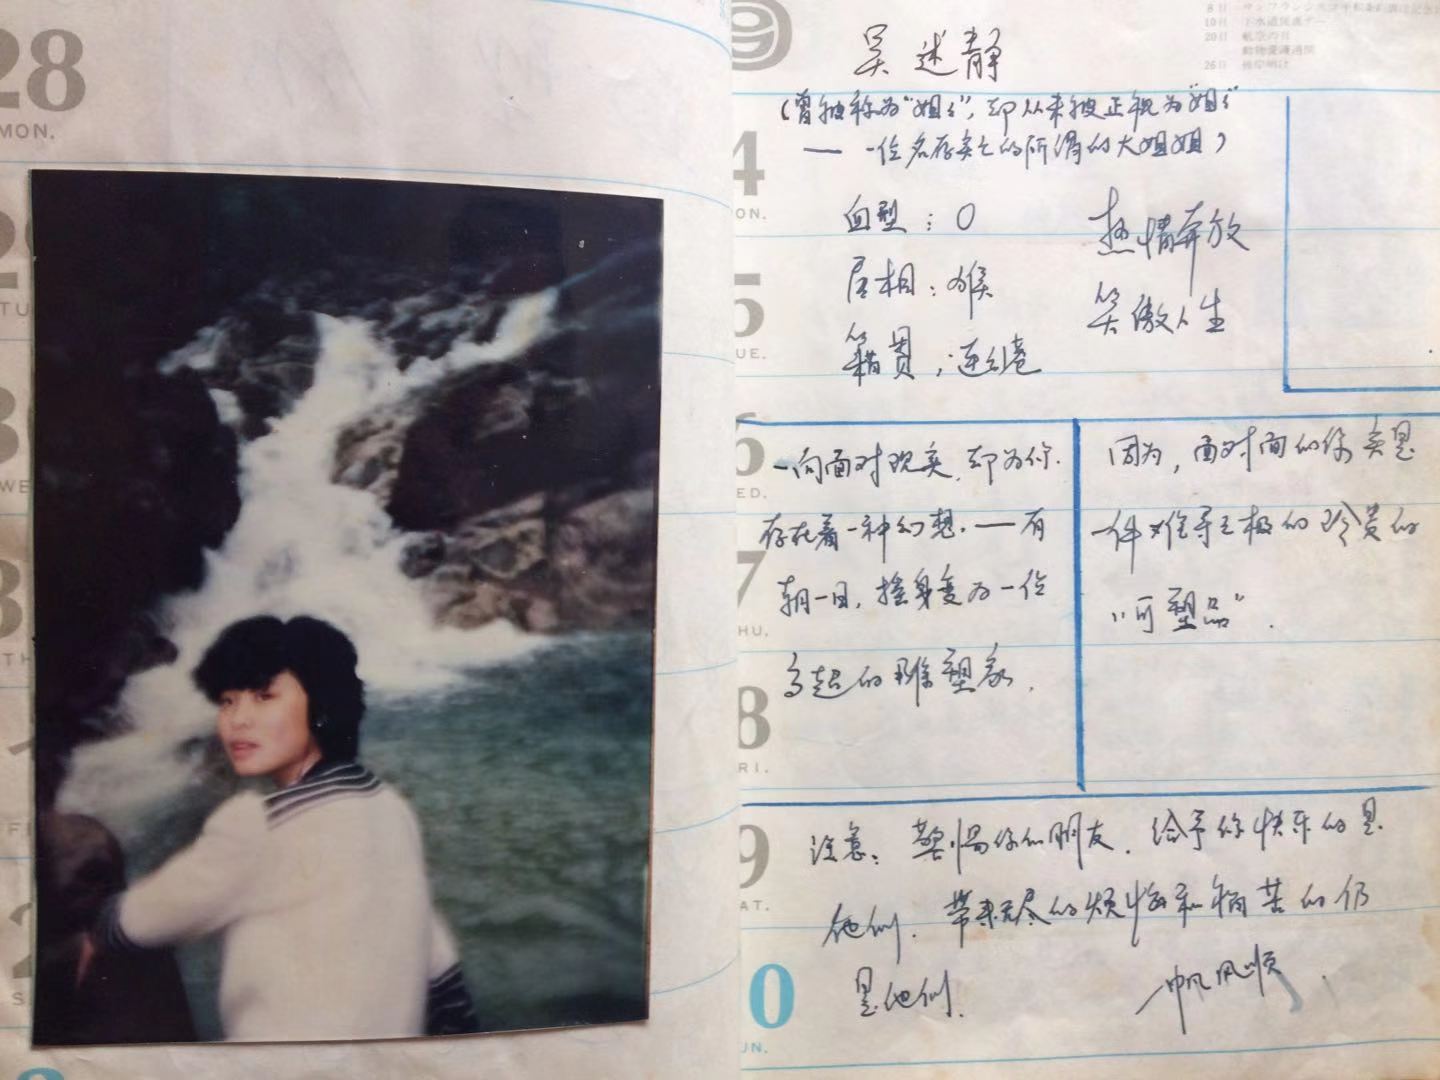 28
MON.
吴述静
(曾被称为“姐姐”，却从未被正视为“姐姐”
— 一位名存实亡的所谓的大姐姐)
血型：O
属相：猴
籍贯：连云港
热情奔放
笑傲人生
一向面对现实，却为你
存在着一种幻想。——有
朝一日，摇身变为一位
了起的雕塑家。
因为，面对面的你实是
一件难寻之极的珍贵的
“可塑品”。
注意：警惕你的朋友，给予你快乐的是
他们，带来无尽的烦恼和痛苦的仍
是他们。
一帆风顺
9
4
5
UE.
6
ED.
7
HU.
8
RI.
9
AT.
0
UN.
8日
10日 下水道促進デー
20日 航空の日
動物愛護週間
26日